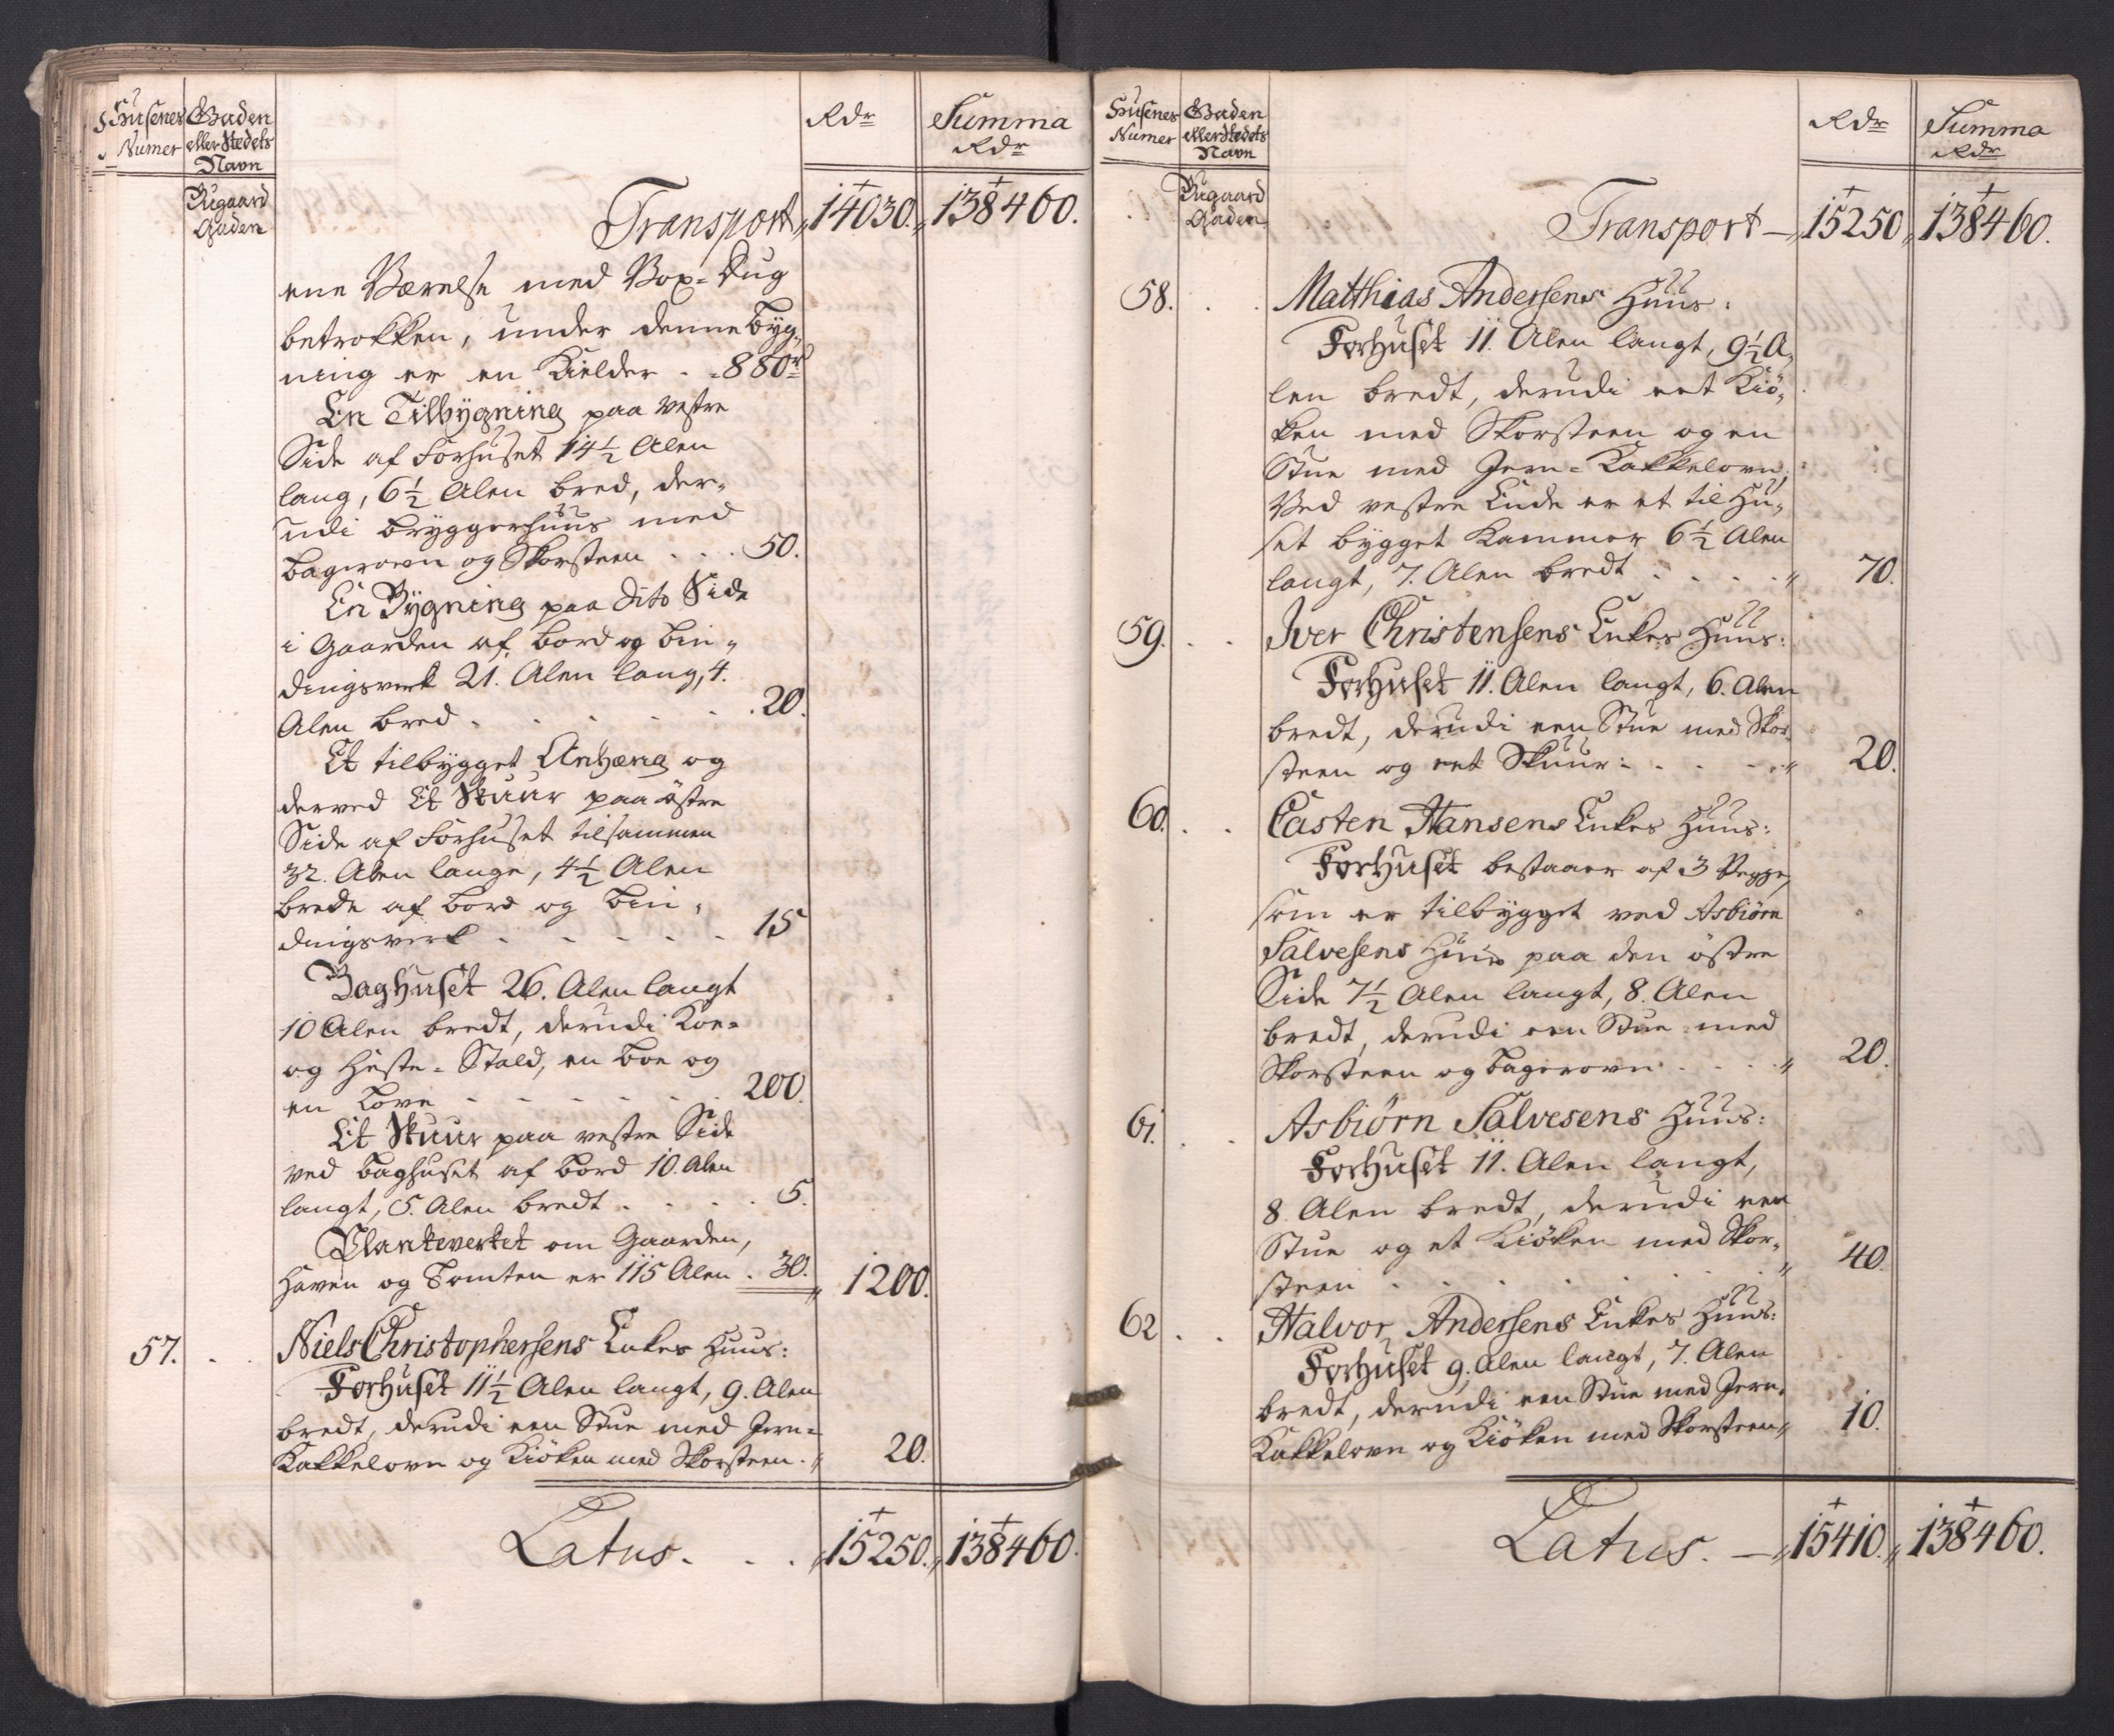 Husenes Gaden Rdr Summa
Numer eller Stedets Rdr
Navn
Rigaard
Gaden
Transport 14030. 138460.
ene Værelse med Vox-Dug
betrokken, under denne Byg-
ning er en Kielder . 880 r
En Tilbygning paa vestre
Side af Forhuset 14½ Alen
lang, 6½ Alen bred, der-
udi Bryggerhuus med
Bagerovn og Skorsteen . . . 50.
En Bygning paa dito Side
i Gaarden af Bord og Bin-
dingsverk 21. Alen lang, 4.
Alen bred . . . . . 20.
Et tilbygget Anhæng og
derved Et Skuur paa østre
Side af Forhuset tilsammen
32. Alen lange, 4½ Alen
brede af Bord og Bin-
dingsverk . . . . . 15
Baghuset 26. Alen langt
10 Alen bredt, derudi Koe-
og Heste-Stald, en Boe og
en Love . . . . . 200.
Et Skuur paa vestre Side
ved Baghuset af Bord 10. Alen
langt, 5. Alen bredt . . . . 5.
Plankeverket om Gaarden,
Haven og Tomten er 115 Alen . 30. 1200.
57. . . Niels Christophersens Enkes Huus:
Forhuset 11½ Alen langt, 9. Alen
bredt, derudi een Stue med Jern-
Kakkelovn og Kiöken med Skorsteen . 20.
Latus . . . 15250. 138460.
Husenes Gaden Rdr Summa
Numer eller Stedets Rdr
Navn
Rigaard
Gaden
Transport — 15250 138460.
58. . . Matthias Andersens Huus:
Forhuset 11. Alen langt, 9½ A-
len bredt, derudi eet Kiö-
ken med Skorsteen og en
Stue med Jern-Kakkelovn.
Ved vestre Ende er et til Hu-
set bygget Kammer 6½ Alen
langt, 7. Alen bredt . . . . 70.
59. . . Iver Christensens Enkes Huus:
Forhuset 11. Alen langt, 6. Alen
bredt, derudi een Stue med Skor-
steen og eet Skuur: . . . . 20.
60. . . Casten Hansens Enkes Huus:
Forhuset bestaaer af 3 Vegge,
som er tilbygget ved Asbiörn
Salvesens Huus paa den östre
Side 7½ Alen langt, 8. Alen
bredt, derudi een Stue med
Skorsteen og Bagerovn . . . . 20.
61. . . Asbiörn Salvesens Huus:
Forhuset 11. Alen langt,
8. Alen bredt, derudi een
Stue og et Kiöken med Skor-
steen . . . . . . 40.
62 . . Halvor Andersens Enkes Huus:
Forhuset 9. Alen langt, 7. Alen
bredt, derudi een Stue med Jern-
Kakkelovn og Kiöken med Skorsteen 10.
Latus. — 15410. 138460.